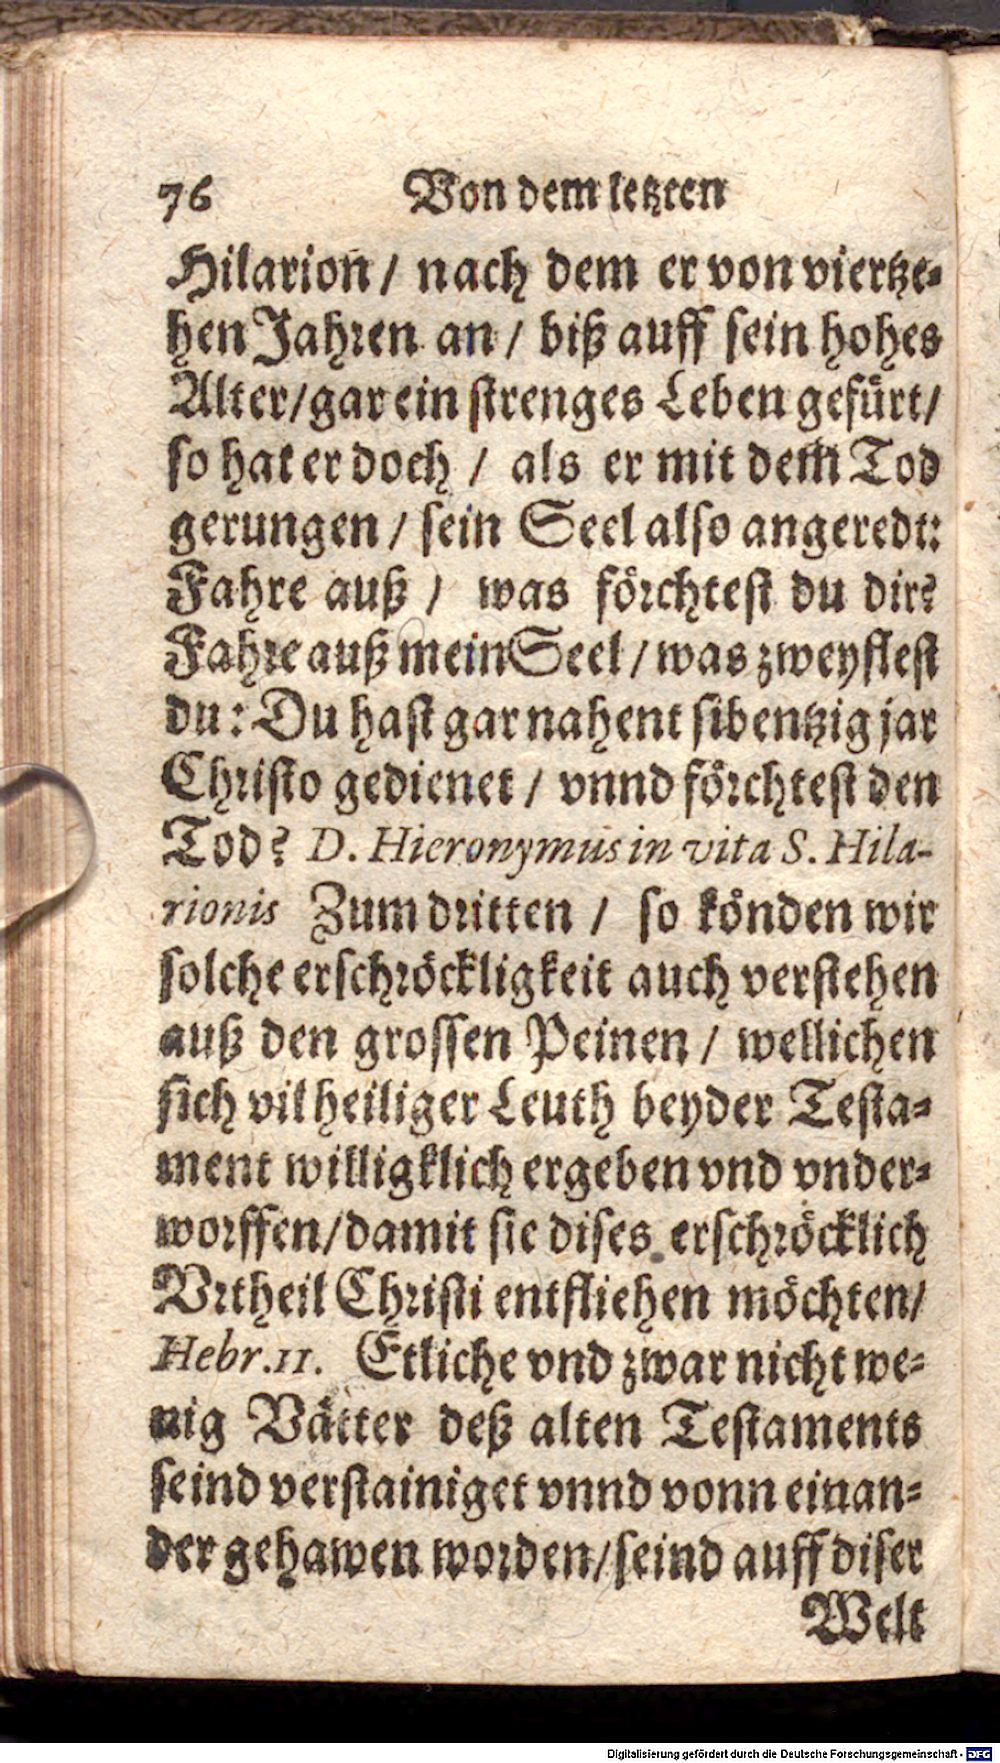 76 Von dem letzten
Hilarion / nach dem er von viertze-
hen Jahren an / biß auff sein hohes
Alter/gar ein strenges Leben gefürt/
so hat er doch / als er mit dem Tod
gerungen / sein Seel also angeredt:
Fahre auß / was förchtest du dir?
Fahre auß mein Seel / was zweyflest
du: Du hast gar nahent sibentzig jar
Christo gedienet / vnnd förchtest den
Tod? D. Hieronymus in vita S. Hila-
rionis Zum dritten / so könden wir
solche erschröckligkeit auch verstehen
auß den grossen Peinen / wellichen
sich vil heiliger Leuth beyder Testa-
ment willigklich ergeben vnd vnder-
worffen/damit sie dises erschröcklich
Vrtheil Christi entfliehen möchten/
Hebr.11. Etliche vnd zwar nicht we-
nig Vätter deß alten Testaments
seind verstainiget vnnd vonn einan-
der gehawen worden/seind auff diser
Welt
Digitalisierung gefördert durch die Deutsche Forschungsgemeinschaft - DFG